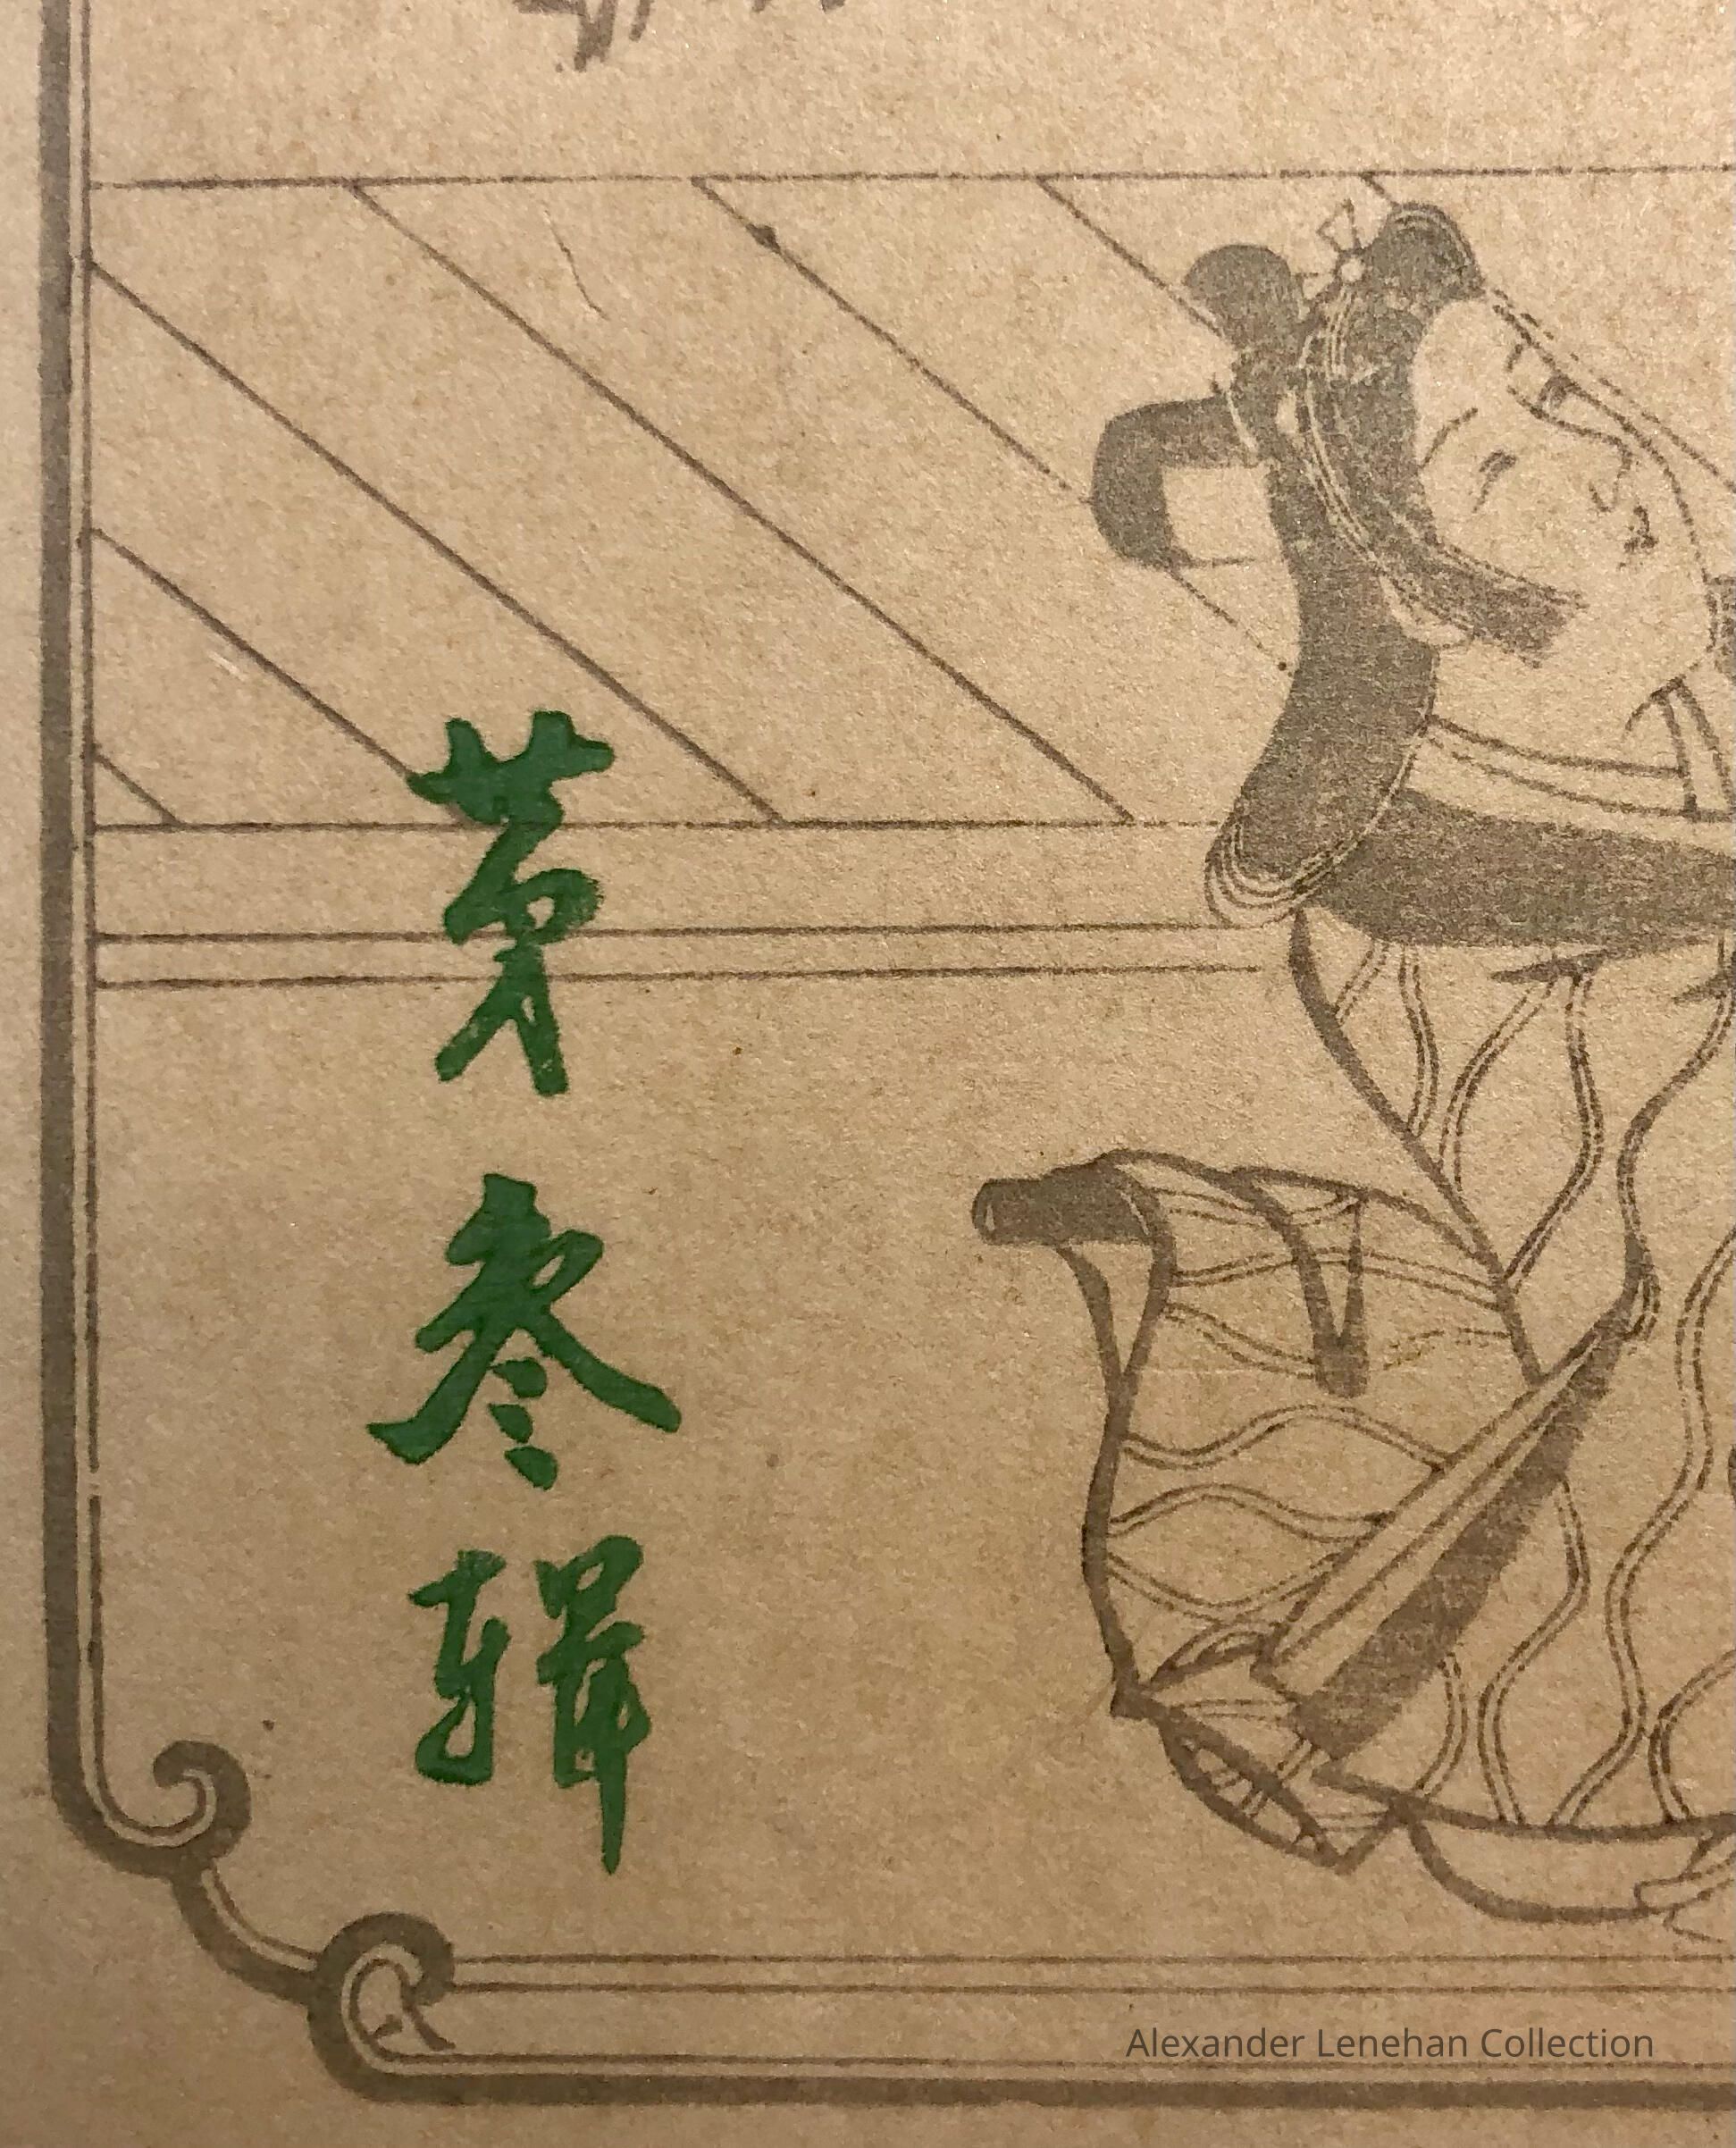 第叁輯
Alexander Lenehan Collection